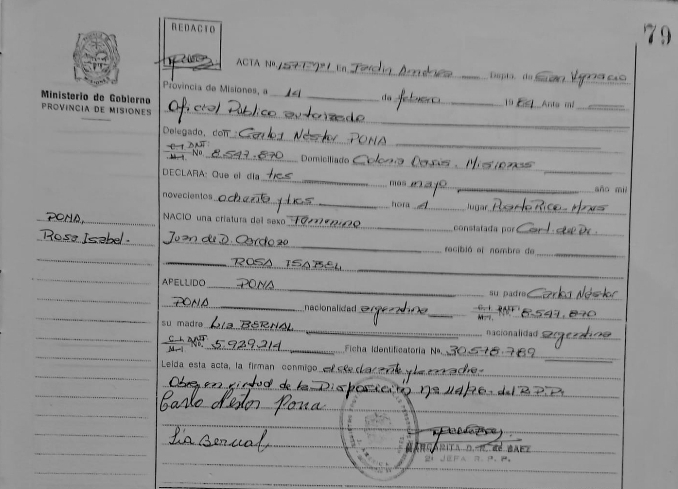 79
REDACTO
Ministerio de Gobierno
PROVINCIA DE MISIONES
ACTA Nº En Jardín América Depto. de San Ignacio
Provincia de Misiones, a 14 de febrero 1984 Ante mí
Oficial Público autorizado
Delegado, Carlos Néstor PONA
No 8.547.870 Domiciliado Colonia Oasis - Misiones
DECLARA: Que el día tres mes mayo año mil
novecientos ochenta y tres hora 4 lugar Puerto Rico - Mnes
NACIO una criatura del sexo Femenino constatada por Cert. del Dr.
Juan de D. Cardozo recibió el nombre de
ROSA ISABEL
APELLIDO PONA su padre Carlos Néstor
PONA nacionalidad argentina 8.547.870
su madre Lía BERNAL nacionalidad argentina
No. 5.929.214 Ficha Identificatoria No. 30.578.789
Leída esta acta, la firman conmigo el declarante y la madre.
Obra en virtud de la Disposición Nº 114/76 del R.P.P.
Carlo Nestor Pona
Lía Bernal
MARGARITA D. R. de BAEZ
2ª JEFA R. P. P.
PONA,
Rosa Isabel.-